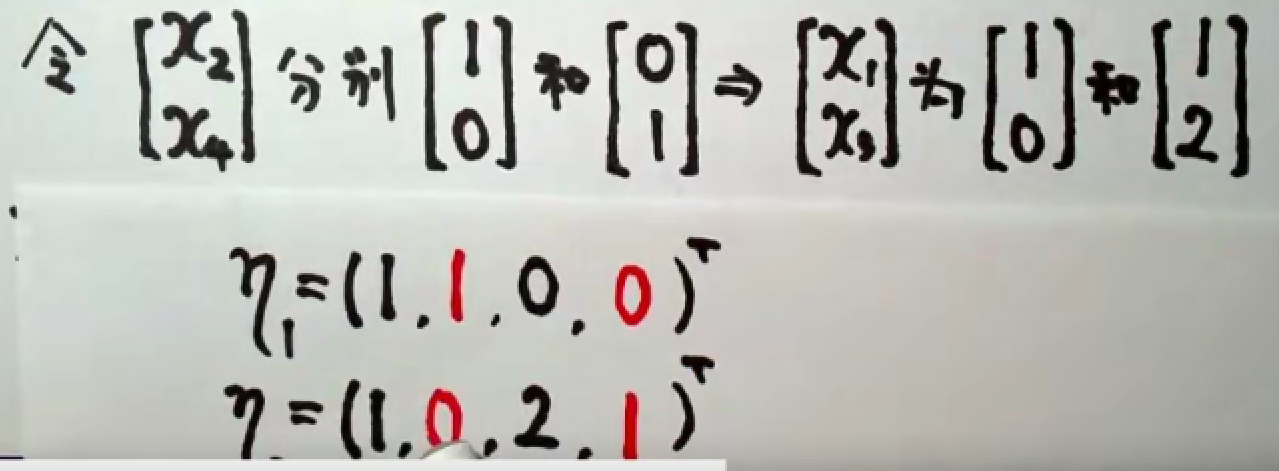 令 [x₂ x₄] 分别 [1 0] 和 [0 1] ⇒ [x₁ x₃] 为 [1 0] 和 [1 2]
η₁=(1,1,0,0)ᵀ
η =(1,0,2,1)ᵀ